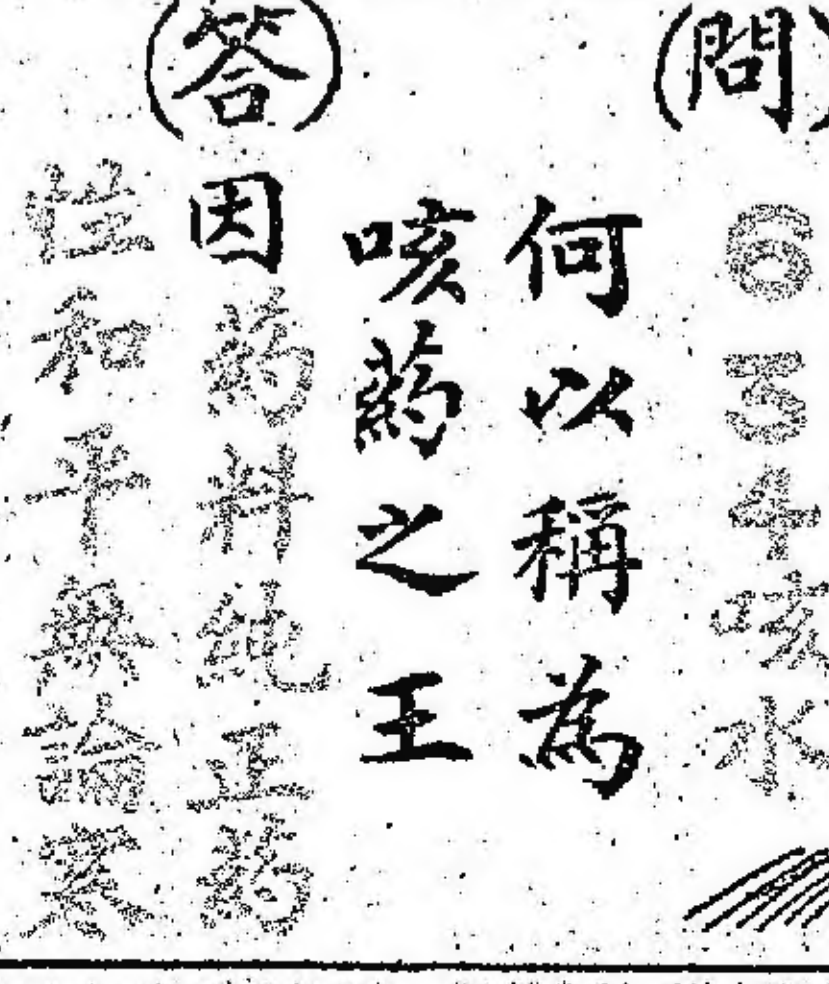 (問)
634咳水
何以稱為
咳藥之王
(答)因藥料純正藥
性和平無論寒